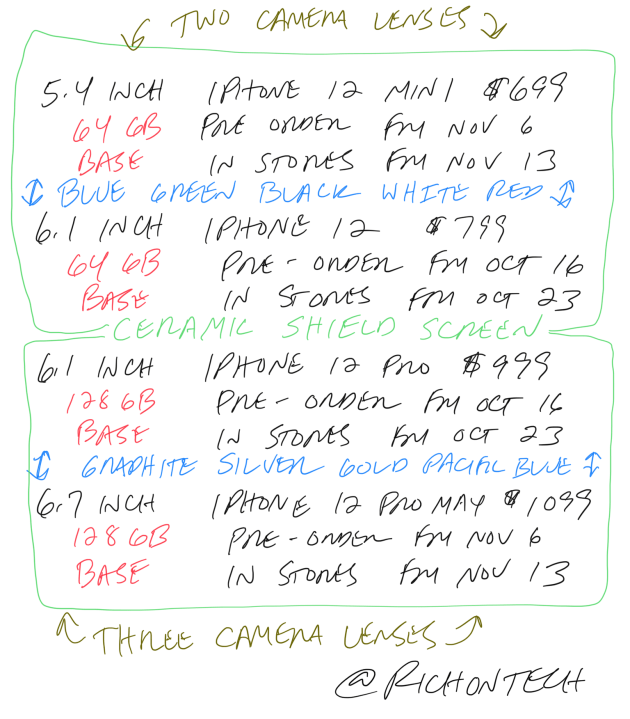 TWO CAMERA LENSES
5.4 INCH IPHONE 12 MINI $699
64 GB PRE ORDER FM NOV 6
BASE IN STORES FM NOV 13
BLUE GREEN BLACK WHITE RED
6.1 INCH IPHONE 12 $799
64 GB PRE-ORDER FM OCT 16
BASE IN STORES FM OCT 23
CERAMIC SHIELD SCREEN
6.1 INCH IPHONE 12 PRO $999
128 GB PRE-ORDER FM OCT 16
BASE IN STORES FM OCT 23
GRAPHITE SILVER GOLD PACIFIC BLUE
6.7 INCH IPHONE 12 PRO MAX $1099
128 GB PRE-ORDER FM NOV 6
BASE IN STORES FM NOV 13
THREE CAMERA LENSES
@RICHONTECH